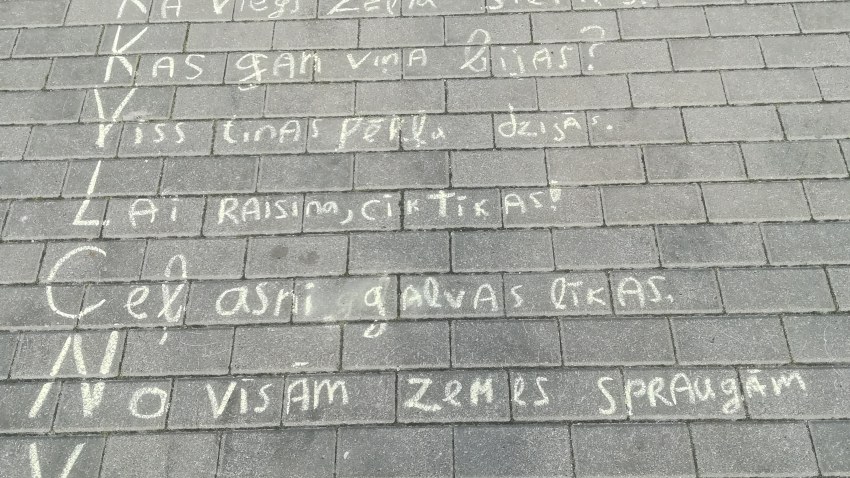 Kā viegs zelta
Kas gan viņa bijas?
Viss tinas pērkļu dzīsās.
Lai raisina, cik tīkas!
Ceļ asni galvas līkas.
No visām zemes spraugām